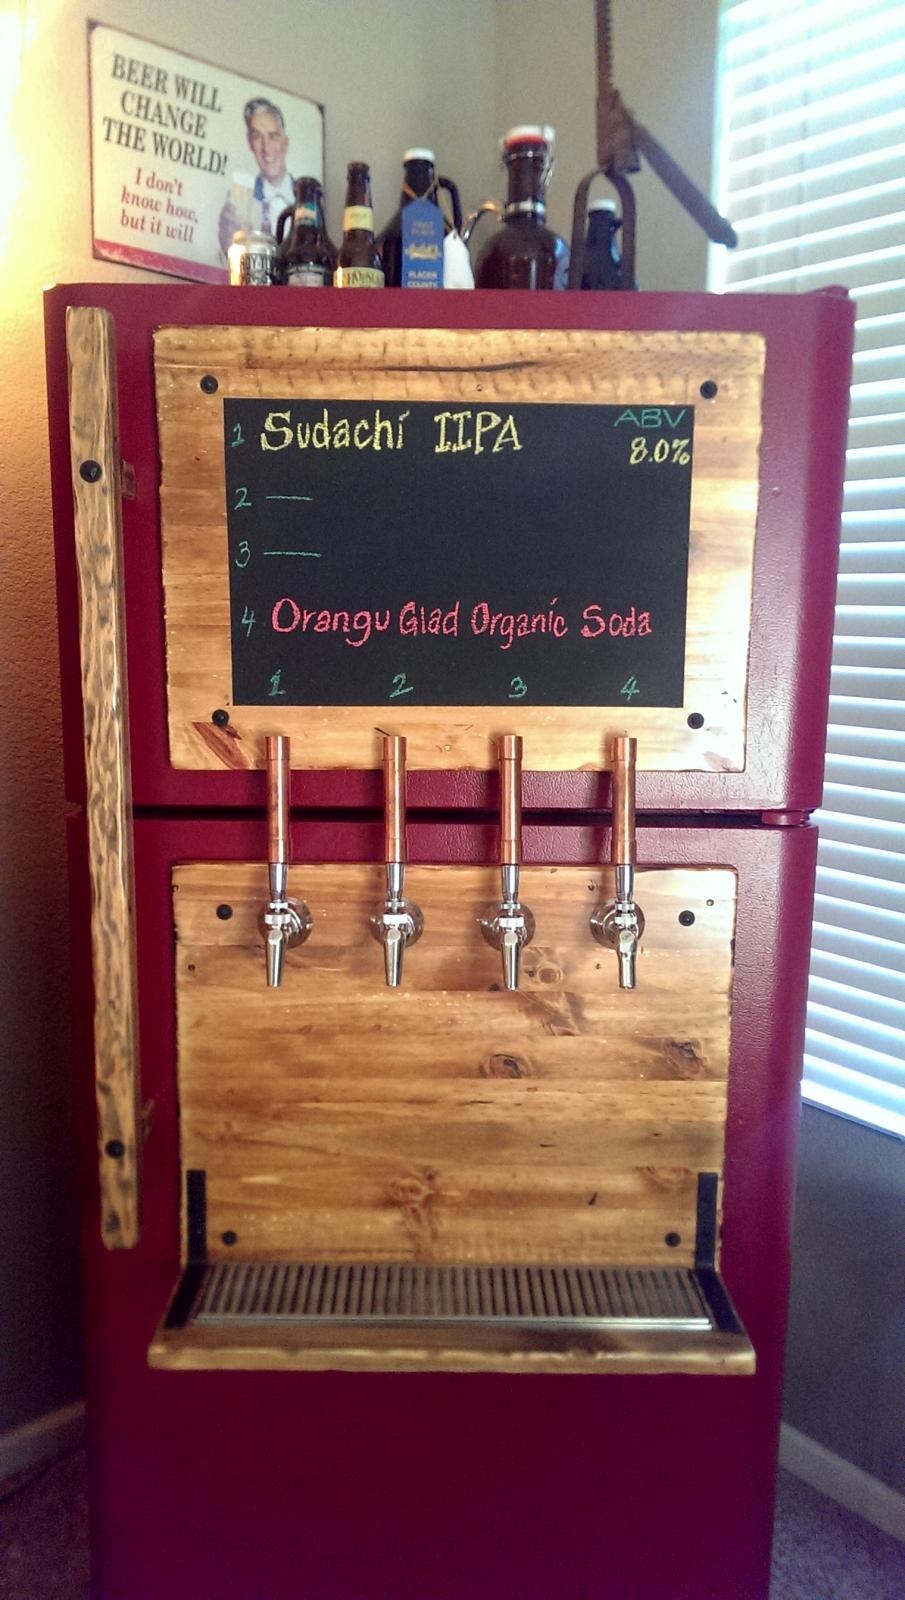 BEER WILL
CHANGE
THE WORLD!
I don't
know how,
but it will
PLACER
COUNTY
ABV
1 Sudachi IIPA 8.0%
2 —
3 —
4 Orangu Glad Organic Soda
1 2 3 4